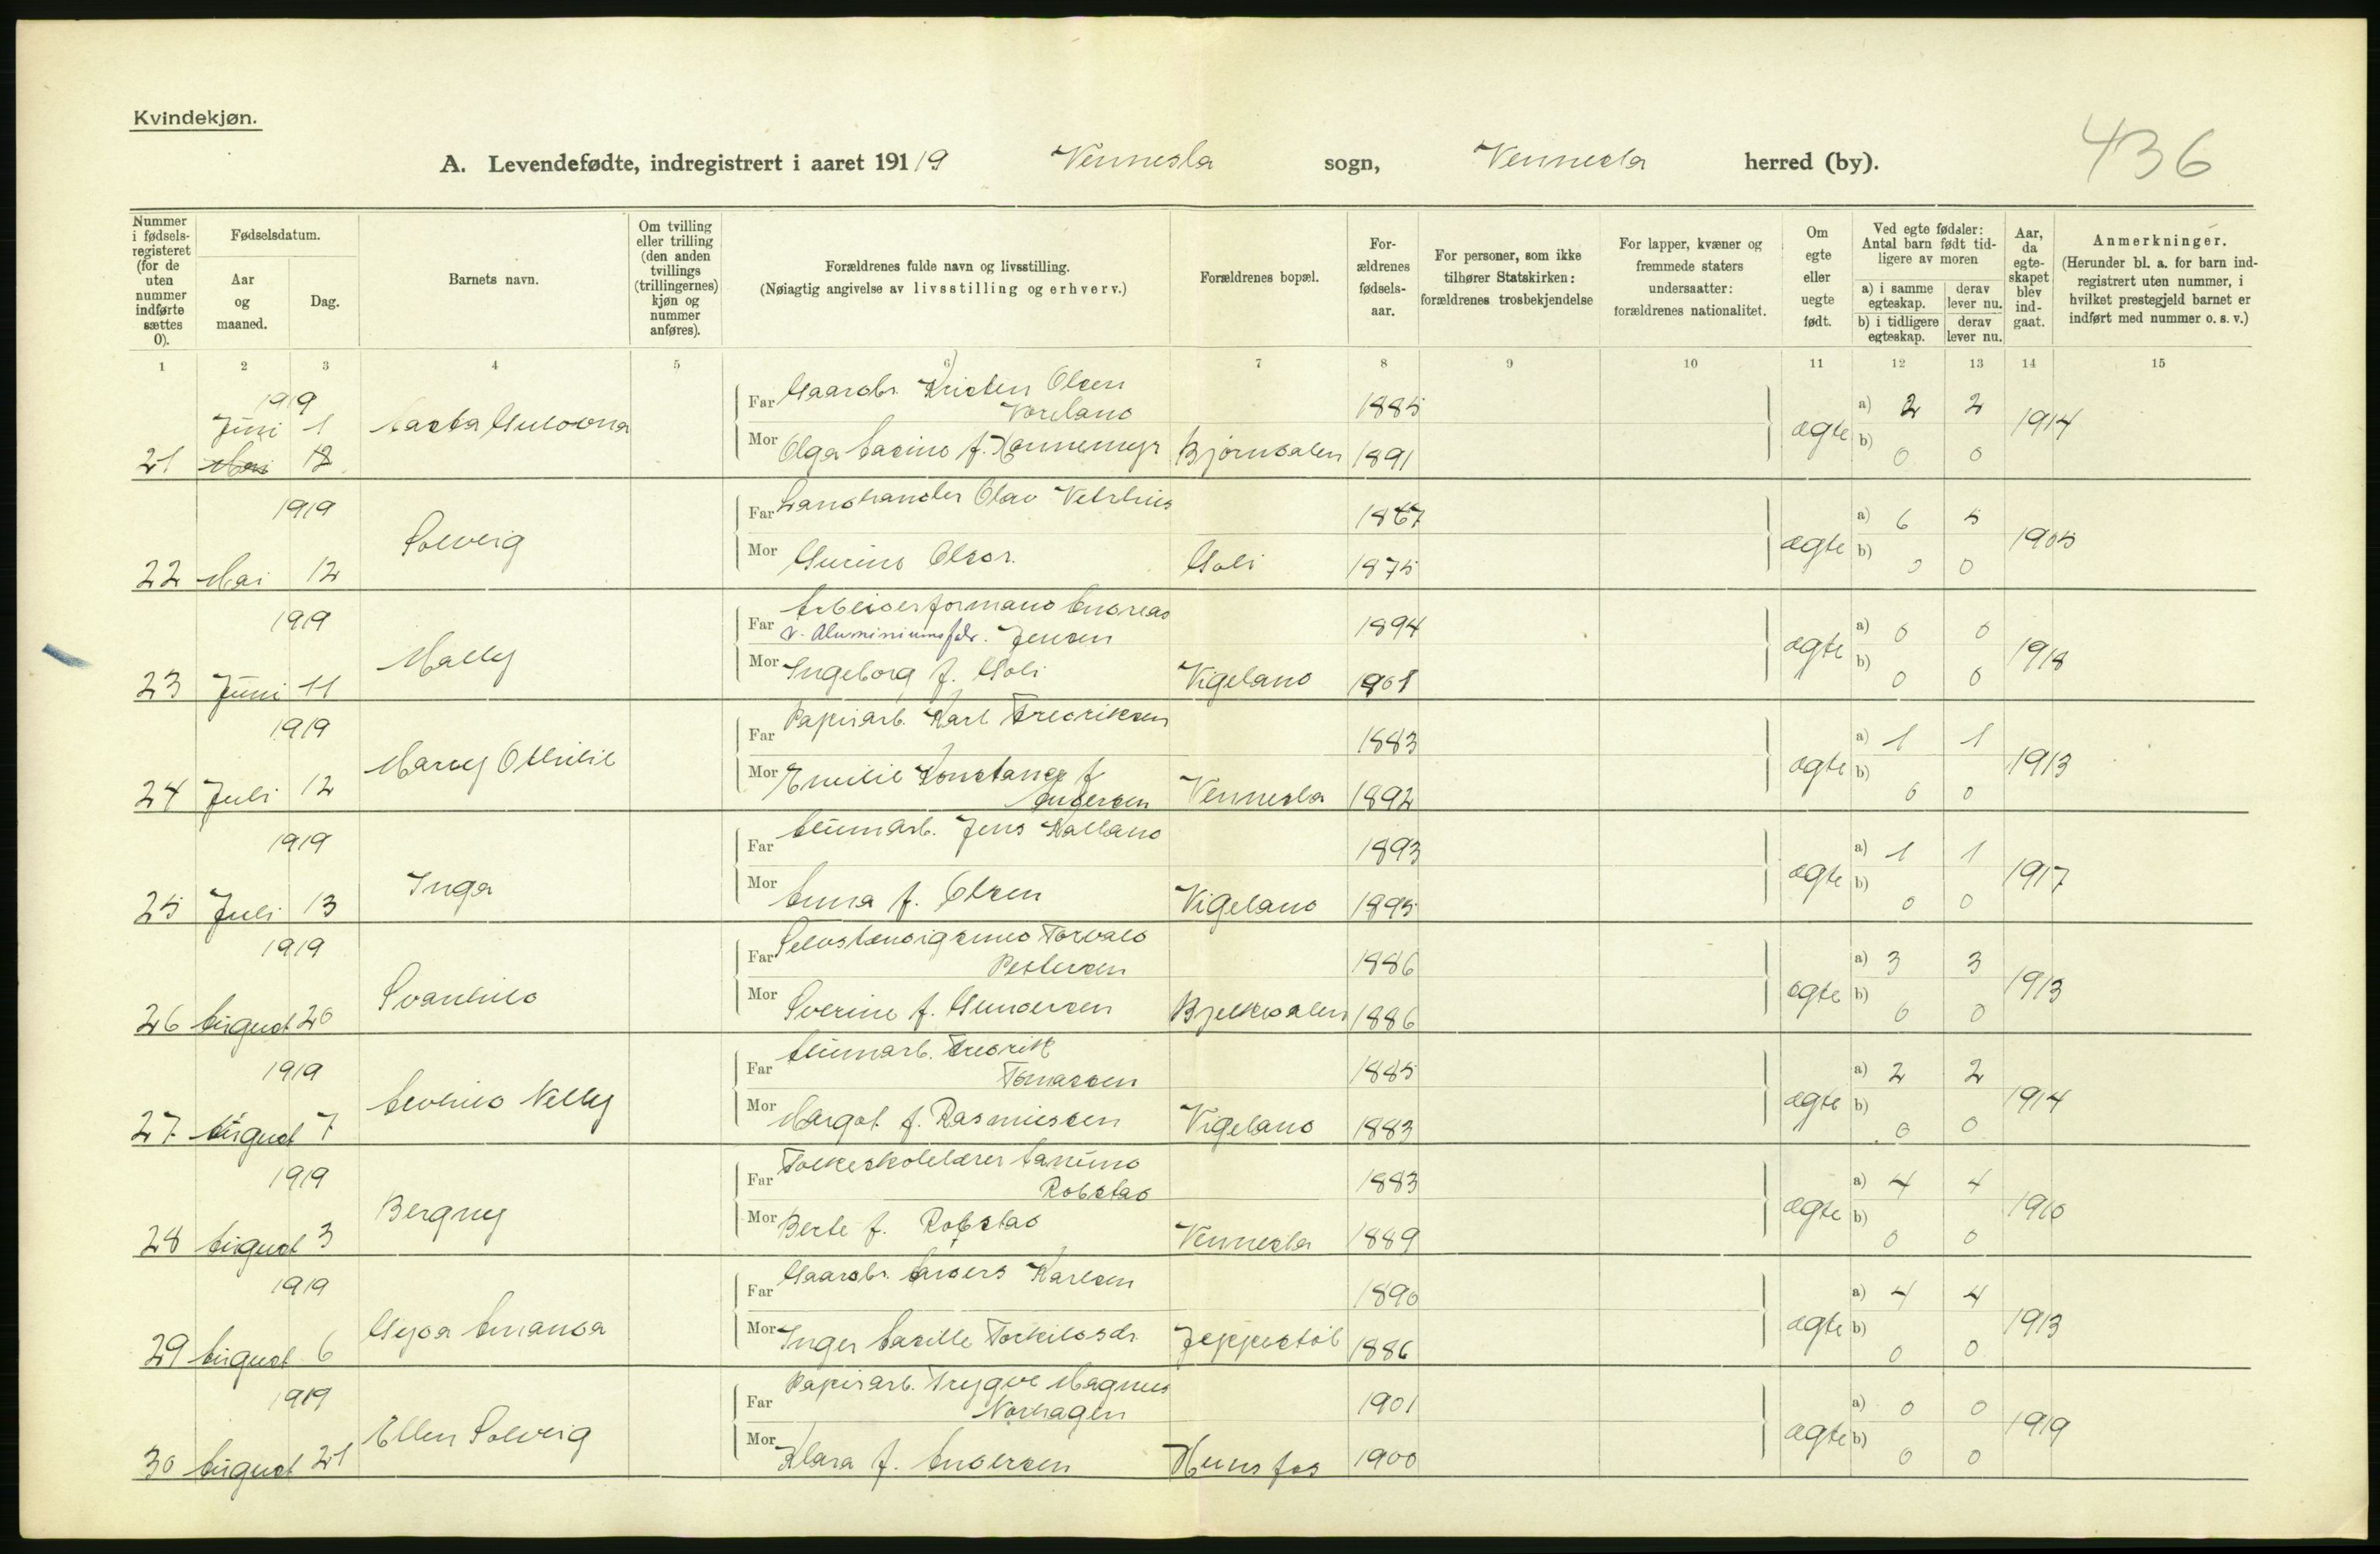 Kvindekjøn.
436
A. Levendefødte, indregistrert i aaret 1919 Vennesla sogn, Vennesla herred (by).
Nummer i fødselsregisteret (for de uten nummer indførte sættes 0).
Fødselsdatum.
Aar og maaned.
Dag.
Barnets navn.
Om tvilling eller trilling (den anden tvillings (trillingernes) kjøn og nummer anføres).
Forældrenes fulde navn og livsstilling.
(Nøiagtig angivelse av livsstilling og erhverv.)
Forældrenes bopæl.
Forældrenes fødselsaar.
For personer, som ikke tilhører Statskirken: forældrenes trosbekjendelse
For lapper, kvæner og fremmede staters undersaatter: forældrenes nationalitet.
Om egte eller uegte født.
Ved egte fødsler: Antal barn født tidligere av moren
a) i samme egteskap. derav lever nu.
b) i tidligere egteskap. derav lever nu.
Aar, da egteskapet blev indgaat.
Anmerkninger.
(Herunder bl. a. for barn indregistrert uten nummer, i hvilket prestegjeld barnet er indført med nummer o. s. v.)
1 2 3 4 5 6 7 8 9 10 11 12 13 14 15
1919
Far Gaardbr. Kristen Olsen
Juni 1 Aasta Gudorna Voreland 1885 a) 2 2 1914
21 Mai 12 Mor Olga Tasine f. Honnemyr Bjørndalen 1891 ægte b) 0 0
1919 Far Landhandler Olav Vetrhus 1867 a) 6 5
Solveig 1905
22 Mai 12 Mor Gurine Olsdr. Moli 1875 ægte b) 0 0
1919 Far Arbeiderformand Andreas
v. Aluminiumsfabr. Jensen 1894 a) 0 0
Mally 1918
23 Juni 11 Mor Ingeborg f. Moli Vigeland 1901 ægte b) 0 0
1919 Far Papirarb. Karl Fredriksen 1883 a) 1 1
Marny Othilie 1913
24 Juli 12 Mor Emilie Konstance f. Andersen Vennesla 1892 ægte b) 0 0
1919 Far Alumarb. Jens Kalland 1893 a) 1 1
Inga 1917
25 Juli 13 Mor Anna f. Olsen Vigeland 1895 ægte b) 0 0
1919 Far Selvstændig smed Torvald
Pedersen 1886 a) 3 3
Svanhild 1913
26 August 20 Mor Sverine f. Gundersen Bjelkedalen 1886 ægte b) 0 0
1919 Far Alumarb. Fredrik
Tomassen 1885 a) 2 2
Asvhild Nelly 1914
27 August 7 Mor Margot f. Rasmussen Vigeland 1883 ægte b) 0 0
1919 Far Folkeskolelærer Aanund
Robstad 1883 a) 4 4
Bergny 1910
28 August 3 Mor Berte f. Robstad Vennesla 1889 ægte b) 0 0
1919 Far Gaardbr. Anders Karlsen 1890 a) 4 4
Gyda Amanda 1913
29 August 6 Mor Inger Tasille Torkildsdr. Jeppestøl 1886 ægte b) 0 0
1919 Far Papirarb. Trygve Magnus
Norhagen 1901 a) 0 0
Ellen Solveig 1919
30 August 21 Mor Klara f. Andersen Hunsfos 1900 ægte b) 0 0